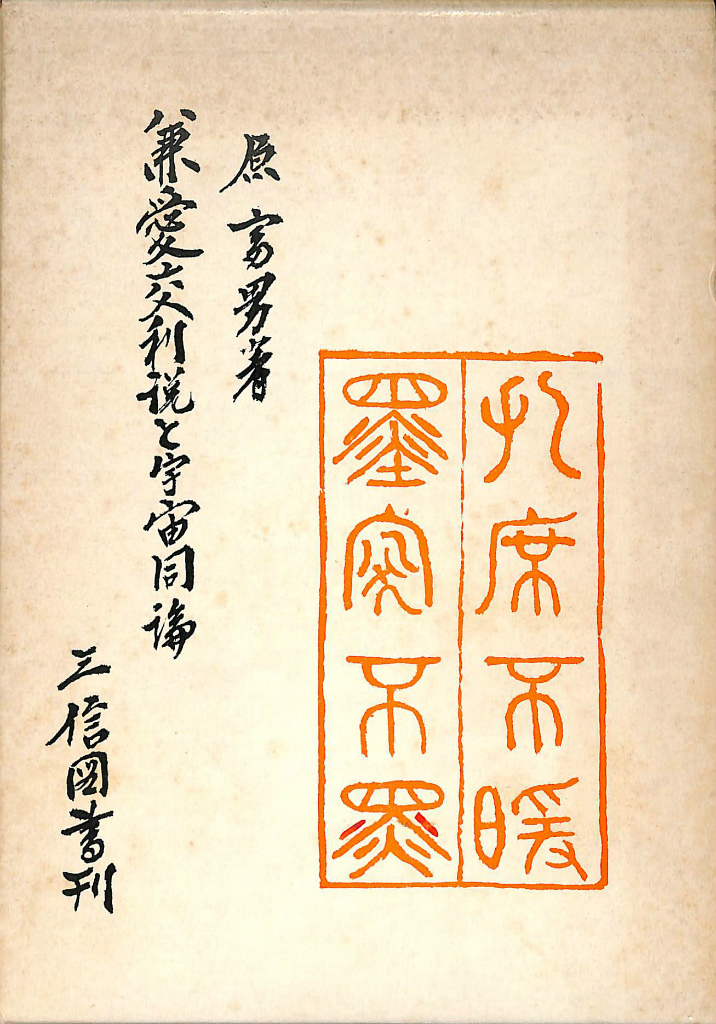 孔席不暖
墨突不黑
原富男著
兼愛交利説と宇宙同論
三信図書刊